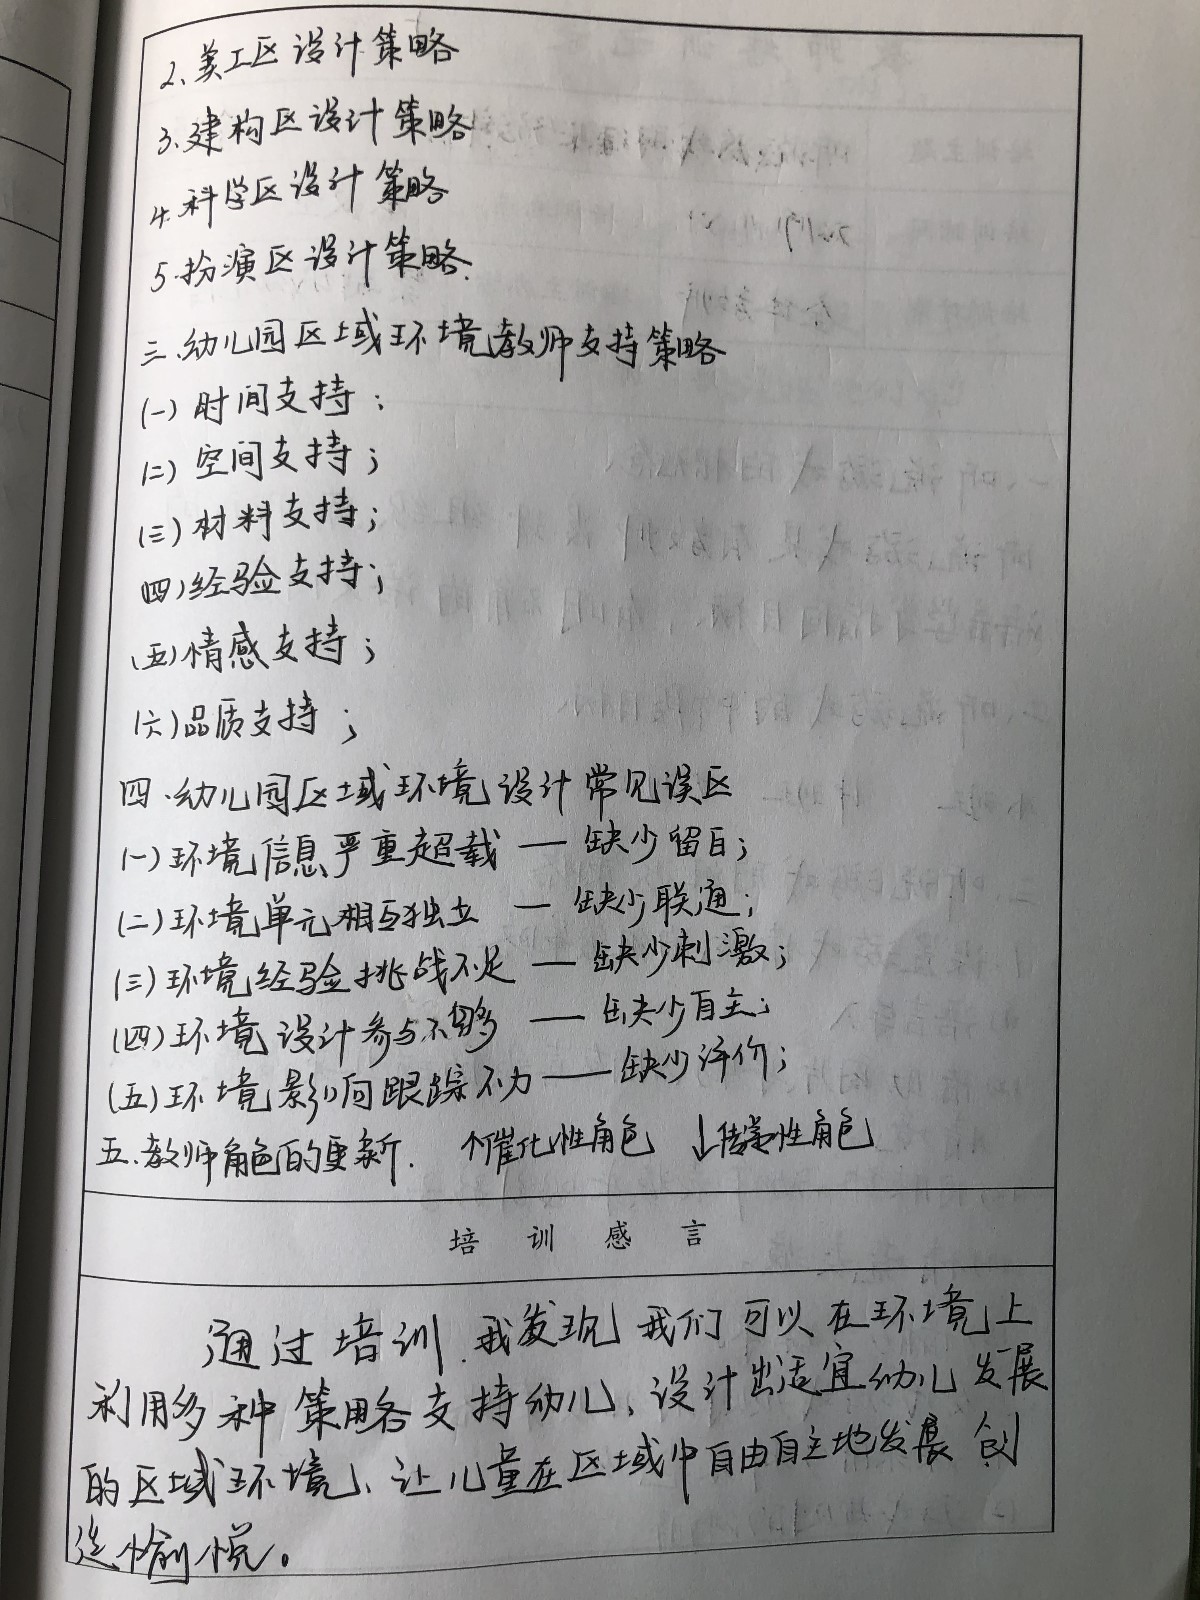 2、美工区设计策略
3、建构区设计策略
4.科学区设计策略
5.扮演区设计策略.
三.幼儿园区域环境教师支持策略
(一)时间支持；
(二)空间支持；
(三)材料支持；
(四)经验支持；
(五)情感支持；
(六)品质支持；
四.幼儿园区域环境设计常见误区
(一)环境信息严重超载——缺少留白；
(二)环境单元相互独立—缺少联通；
(三)环境经验挑战不足——缺少刺激；
(四)环境设计参与不够——缺少自主；
(五)环境影响跟踪不力——缺少评价；
五.教师角色的更新. ↑催化性角色 ↓传导性角色
培训感言
通过培训.我发现我们可以在环境上
利用多种策略支持幼儿、设计出适宜幼儿发展
的区域环境、让儿童在区域中自由自主地发展 创
造愉悦。